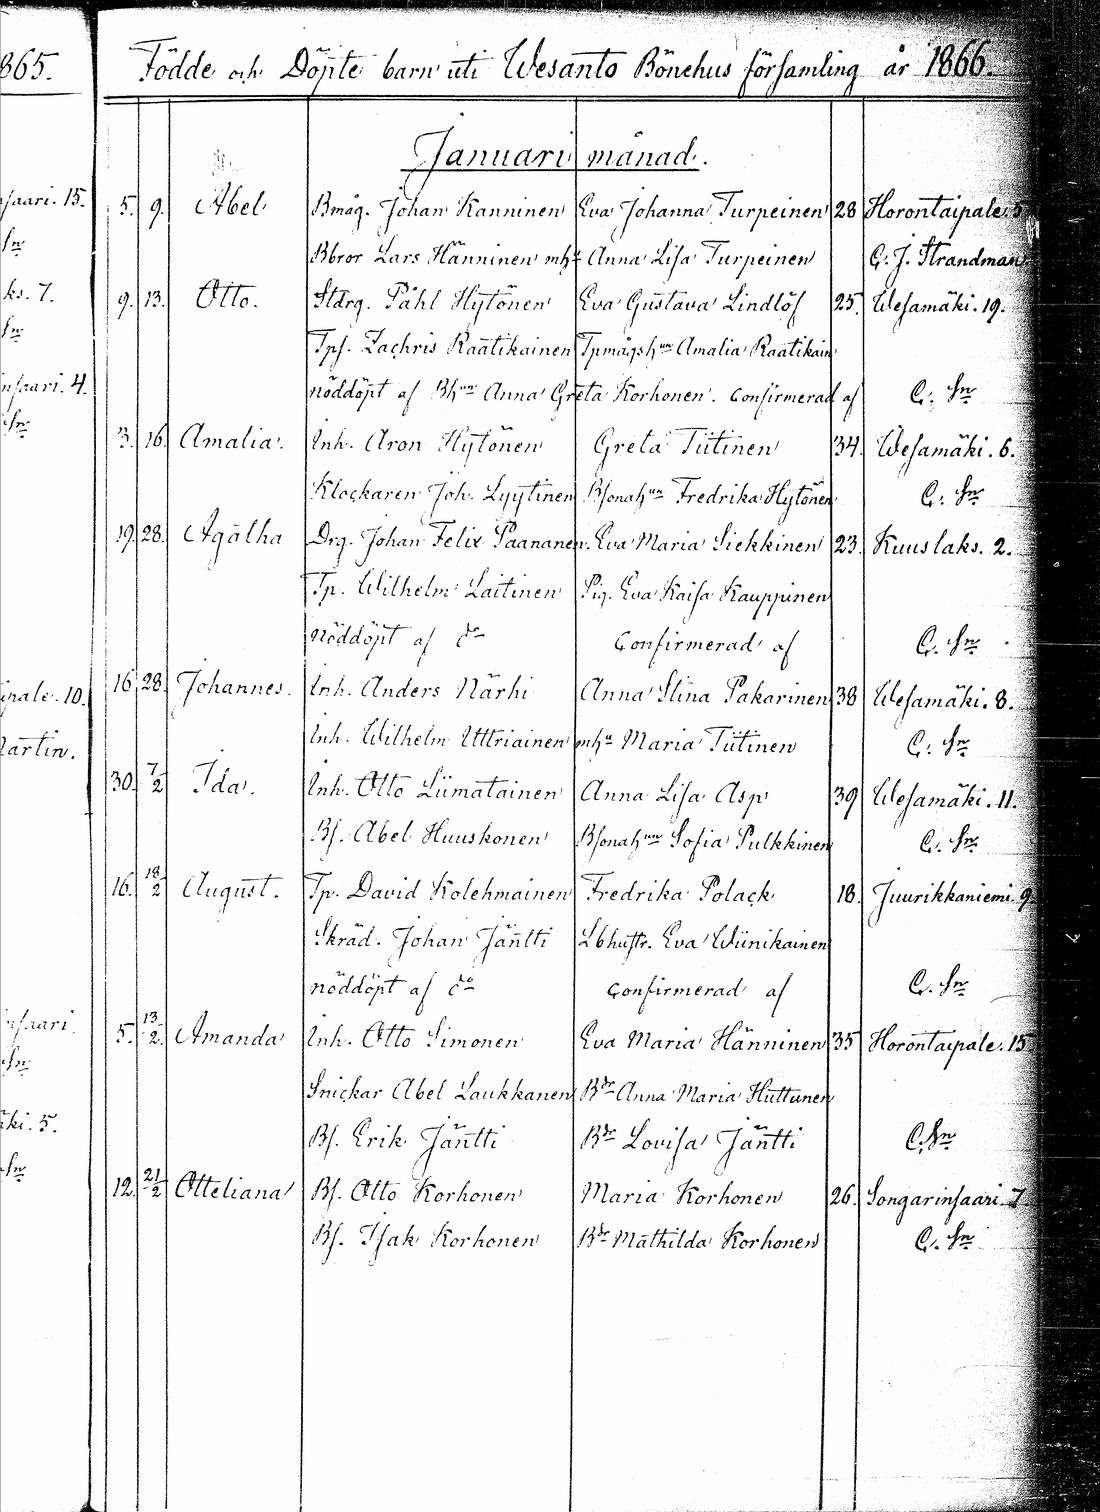 865.
Födde och Döpte barn uti Wesanto Bönehus församling år 1866.
Januari månad.
nsaari. 15.
5. 9. Abel Bmåg. Johan Kanninen Eva Johanna Turpeinen 28 Horontaipale. 5
Sn
Bbror Lars Hänninen mhu Anna Lisa Turpeinen C. J. Strandman
ks. 7.
9. 13. Otto. Stdrg. Påhl Hytönen Eva Gustava Lindlöf 25. Wesamäki. 19.
Sn
Tps. Zachris Raatikainen Tpmågshun Amalia Raatikain
nsaari. 4.
nöddöpt af Bhun Anna Greta Korhonen. Confirmerad af C. Sn
Sn
3. 16. Amalia. Inh. Aron Hytönen Greta Tiitinen 34. Wesamäki. 6.
Klockaren Joh. Lyytinen Bsonahun Fredrika Hytönen C. Sn
19. 28. Agatha Drg. Johan Felix Paananen. Eva Maria Siekkinen 23. Kuuslaks. 2.
Tp. Wilhelm Laitinen Pig. Eva Kaisa Kauppinen
nöddöpt af do Confirmerad af C. Sn
ipale. 10.
16 28. Johannes. Inh. Anders Närhi Anna Stina Pakarinen 38 Wesamäki. 8.
Martin.
Inh. Wilhelm Uttriainen mhu Maria Tiitinen C. Sn
30. 7/2 Ida. Inh. Otto Liimatainen Anna Lisa Asp 39 Wesamäki. 11.
Bs. Abel Huuskonen Bsonahun Sofia Pulkkinen C. Sn
16. 18/2 August. Tp. David Kolehmainen Fredrika Polack 18. Juurikkaniemi. 9.
Skräd. Johan Jäntti Lbhustr. Eva Wiinikainen
nöddöpt af do Confirmerad af C. Sn
nsaari.
5. 13/2. Amanda Inh. Otto Simonen Eva Maria Hänninen 35 Horontaipale. 15.
Sn
Snickar Abel Laukkanen Bdr Anna Maria Huttunen
äki. 5.
Bs. Erik Jäntti Bdr Lovisa Jäntti C. Sn
Sn
12. 21/2 Otteliana Bs. Otto Korhonen Maria Korhonen 26. Songarinsaari. 7
Bs. Isak Korhonen Bdr Mathilda Korhonen C. Sn